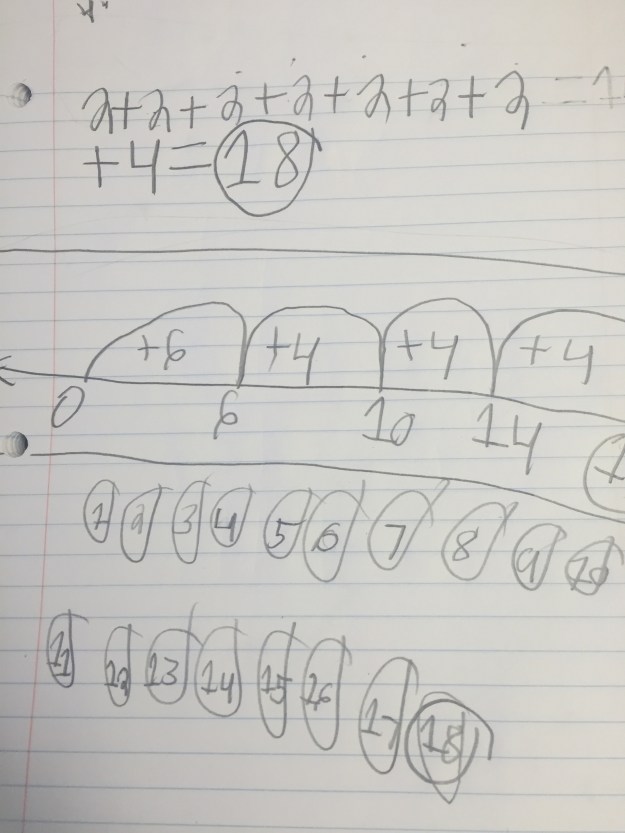 2+2+2+2+2+2+2=1
+4=18
+6 +4 +4 +4
0 6 10 14 1
1 2 3 4 5 6 7 8 9 10
11 12 13 14 15 16 17 18